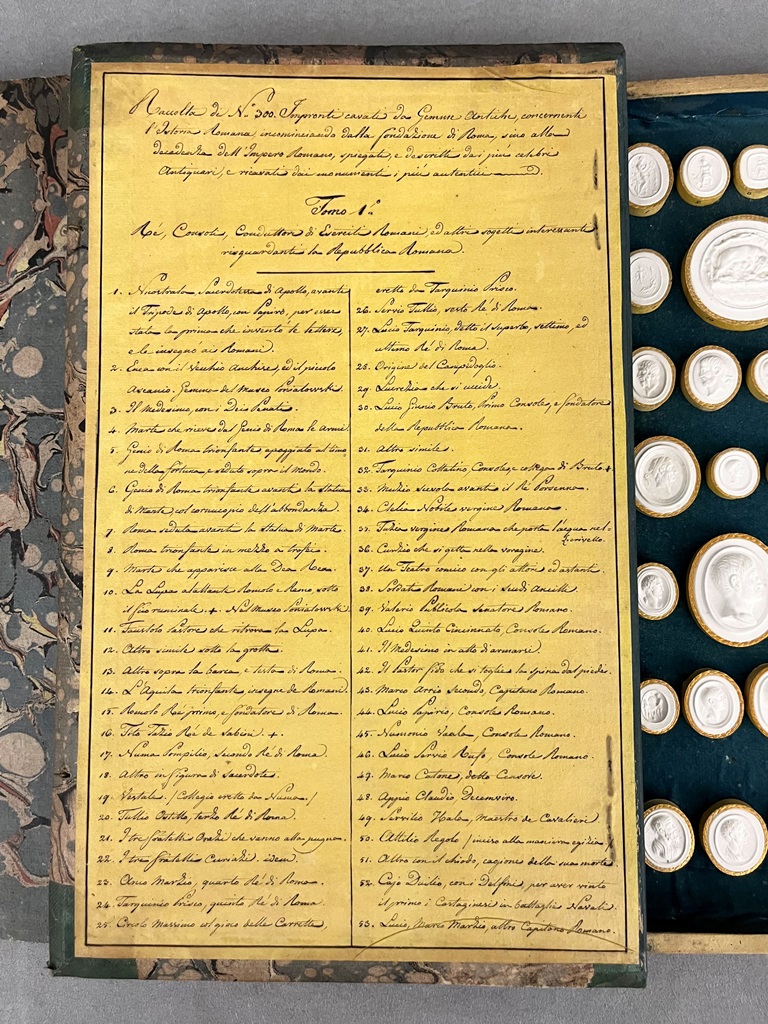 Raccolta de N.º 300. Impronti cavati da Gemme Antiche, concernente
l'Istoria Romana, incominciando dalla fondazione di Roma, sino alla
decadenza dell'Impero Romano, spiegate, e descritte dai piú celebri
Antiquari, e ricavate dai monumenti i piú autentici
Tomo 1.º
Ré, Consoli, Conduttori di Eserciti Romani, ed altri sogetti interessanti
risguardanti la Repubblica Romana.
1. Sacerdotessa di Apollo, avante
il Tripode di Apollo, con Papiro, per esser
stata la prima che inventó le lettere,
e le insegnó ai Romani.
2. Enea con il Vecchio Anchise, ed il piccolo
Ascanio. Gemma del Museo Poniatowski.
3. Il Medesimo, con i Dei Penati.
4. Marte che riceve dal Genio di Roma le Armi.
5. Genio di Roma trionfante apoggiato al timo
ne della fortuna, e seduto sopra il Mondo.
6. Genio di Roma trionfante avanti la statua
di Marte, col cornucopio dell'abbondanza.
7. Roma seduta avante la statua di Marte.
8. Roma trionfante in mezzo a trofei.
9. Marte che apparisce alla Dea Rea.
10. La Lupa allattante Romolo e Remo sotto
il fico ruminale. + Nel Museo Poniatowski.
11. Faustolo Pastore che ritrova la Lupa.
12. Altro simile sotto la grotta.
13. Altro sopra la barca, e testa di Roma.
14. L'Aquila trionfante insegna de Romani.
15. Romolo Ré primo, e fondatore di Roma.
16. Tito Tazio Ré de Sabini. +.
17. Numa Pompilio, Secondo Ré di Roma
18. Altro in figura di Sacerdote.
19. Vestale. / Collegio eretto da Numa. /
20. Tullio Ostilio, terzo Ré di Roma.
21. I tre fratelli Orazi che vanno alla pugna.
22. I tre fratelli Curiazi. idem
23. Anco Marzio, quarto Ré di Roma.
24. Tarquinio Prisco, quinto Ré di Roma
25. Circolo Massimo col gioco delle Carrette,
eretto da Tarquinio Prisco.
26. Servio Tullio, sesto Ré di Roma.
27. Lucio Tarquinio, detto il superbo, settimo, ed
ultimo Ré di Roma.
28. Origine del Campidoglio.
29. Lucrezia che si uccide.
30. Lucio Giunio Bruto, Primo Console, e fondatore
della Repubblica Romana.
31. Altro simile.
32. Tarquinio Collatino Console, e collega di Bruto. +.
33. Muzio Scevola avante il Ré Porsenna.
34. Clelia Nobile vergine Romana.
35. Tuzia vergine Romana che porta l'acqua nel
crivello.
36. Curzio che si getta nella voragine.
37. Un Teatro comico con gli attori ed astanti.
38. Soldati Romani con i Scudi Ancilli.
39. Valerio Publicola Senatore Romano.
40. Lucio Quinto Cincinnato, Console Romano.
41. Il Medesimo in atto d'armarsi.
42. Il Pastor fido che si toglie la spina dal piede.
43. Marco Arrio Secondo, Capitano Romano.
44. Lucio Papirio, Console Romano.
45. Numonio Vaala, Console Romano.
46. Lucio Servio Rufo, Console Romano.
47. Marco Catone, detto Censore.
48. Appio Claudio, Decemviro.
49. Servilio Hala, Maestro de Cavalieri
50. Attilio Regolo / inciso alla maniera egizia /
51. Altro con il chiodo, cagione della sua morte
52. Cajo Duilio, con i Delfini, per aver vinto
il primo i Cartaginesi in battaglie Navali.
53. Lucio Marco Marzio, altro Capitano Romano.